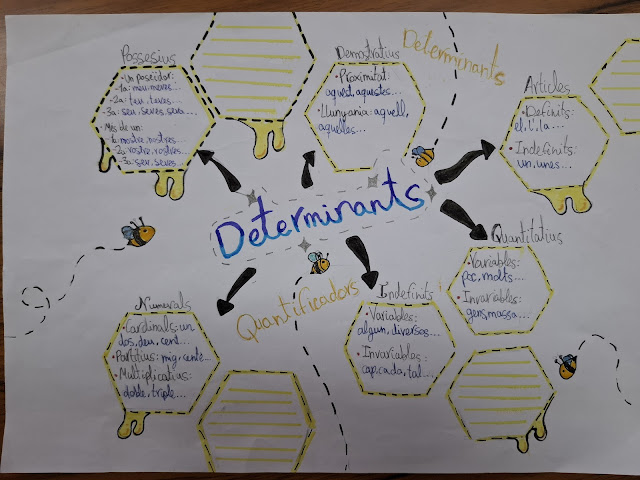 Possesius
• Un poseïdor:
-1a: meu, meves...
-2a: teu, teves...
-3a: seu, seves, seva...
• Més de un:
-1a: nostre, nostres...
-2a: vostre, vostres...
-3a: seu, seves...
Demostratius
• Proximitat:
aquest, aquestes...
• Llunyania: aquell,
aquelles...
Determinants
Articles
• Definits:
el, l', la...
• Indefinits:
un, unes...
Determinants
Quantitatius
• Variables:
poc, molts...
• Invariables:
gens, massa...
Numerals
• Cardinals: un
dos, deu, cent...
• Partitius: mig,
• Multiplicatius:
doble, triple...
Quantificadors
Indefinits
• Variables:
algun, diversos...
• Invariables:
cap, cada, tal...